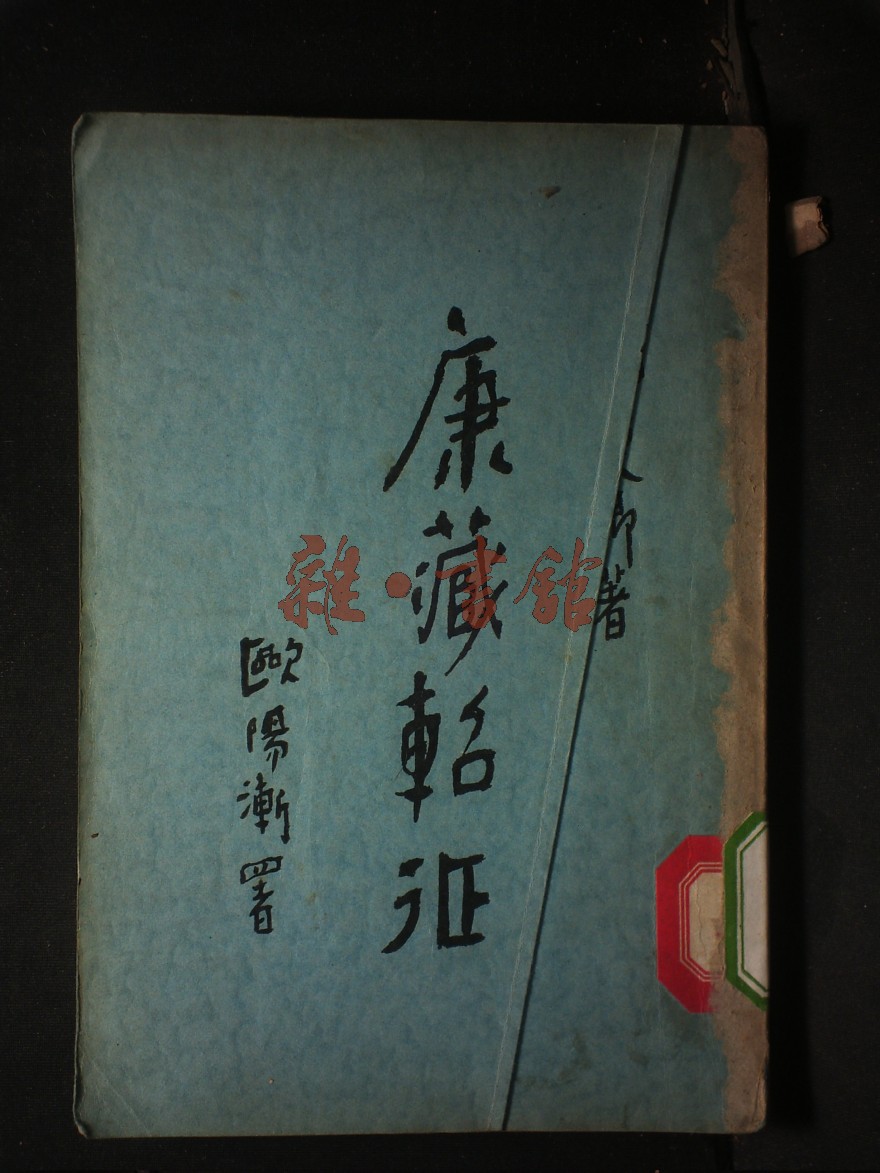 著
康藏軺征
歐陽漸署
雜·書館